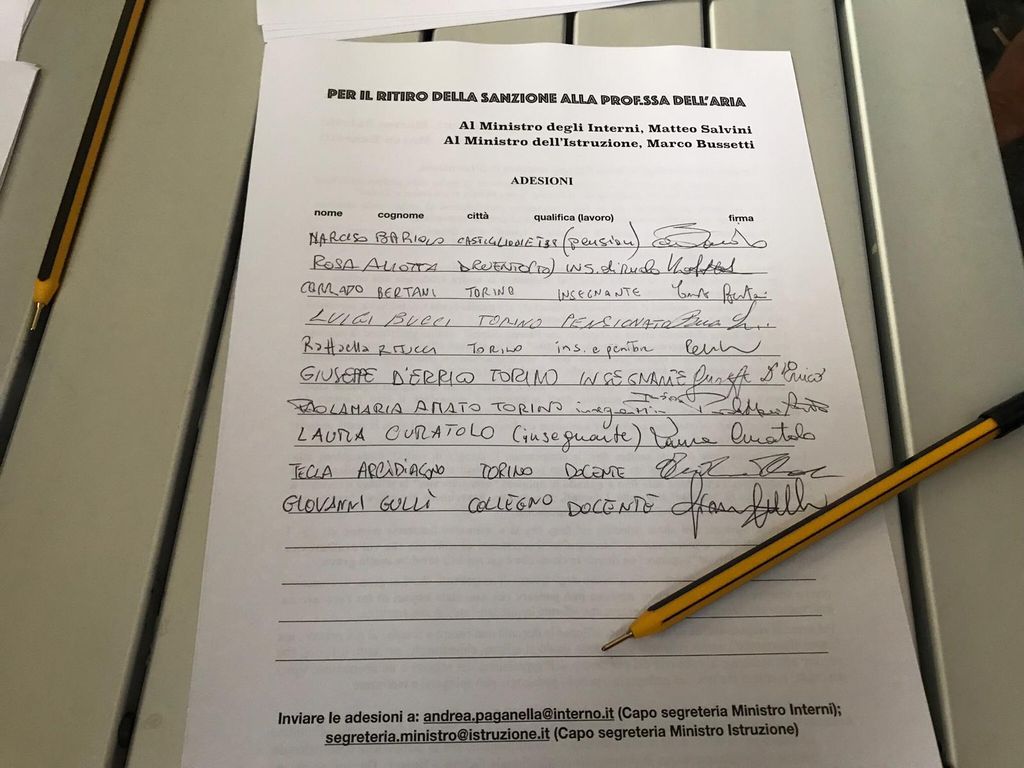 PER IL RITIRO DELLA SANZIONE ALLA PROF.SSA DELL'ARIA
Al Ministro degli Interni, Matteo Salvini
Al Ministro dell'Istruzione, Marco Bussetti
ADESIONI
nome cognome città qualifica (lavoro) firma
NARCISO BARIOLO (pension)
ROSA ALIOTTA INS.
CORRADO BERTANI TORINO INSEGNANTE
LUIGI BUCCI TORINO PENSIONATO
Raffaella TORINO ins. e
GIUSEPPE D'ERRICO TORINO INSEGNANTE Giuseppe D'Errico
PAOLAMARIA AMATO TORINO
LAURA CURATOLO (insegnante) Laura Curatolo
TECLA ARCIDIACONO TORINO DOCENTE
GIOVANNI GULLÌ COLLEGNO DOCENTE
Inviare le adesioni a: andrea.paganella@interno.it (Capo segreteria Ministro Interni);
segreteria.ministro@istruzione.it (Capo segreteria Ministro Istruzione)